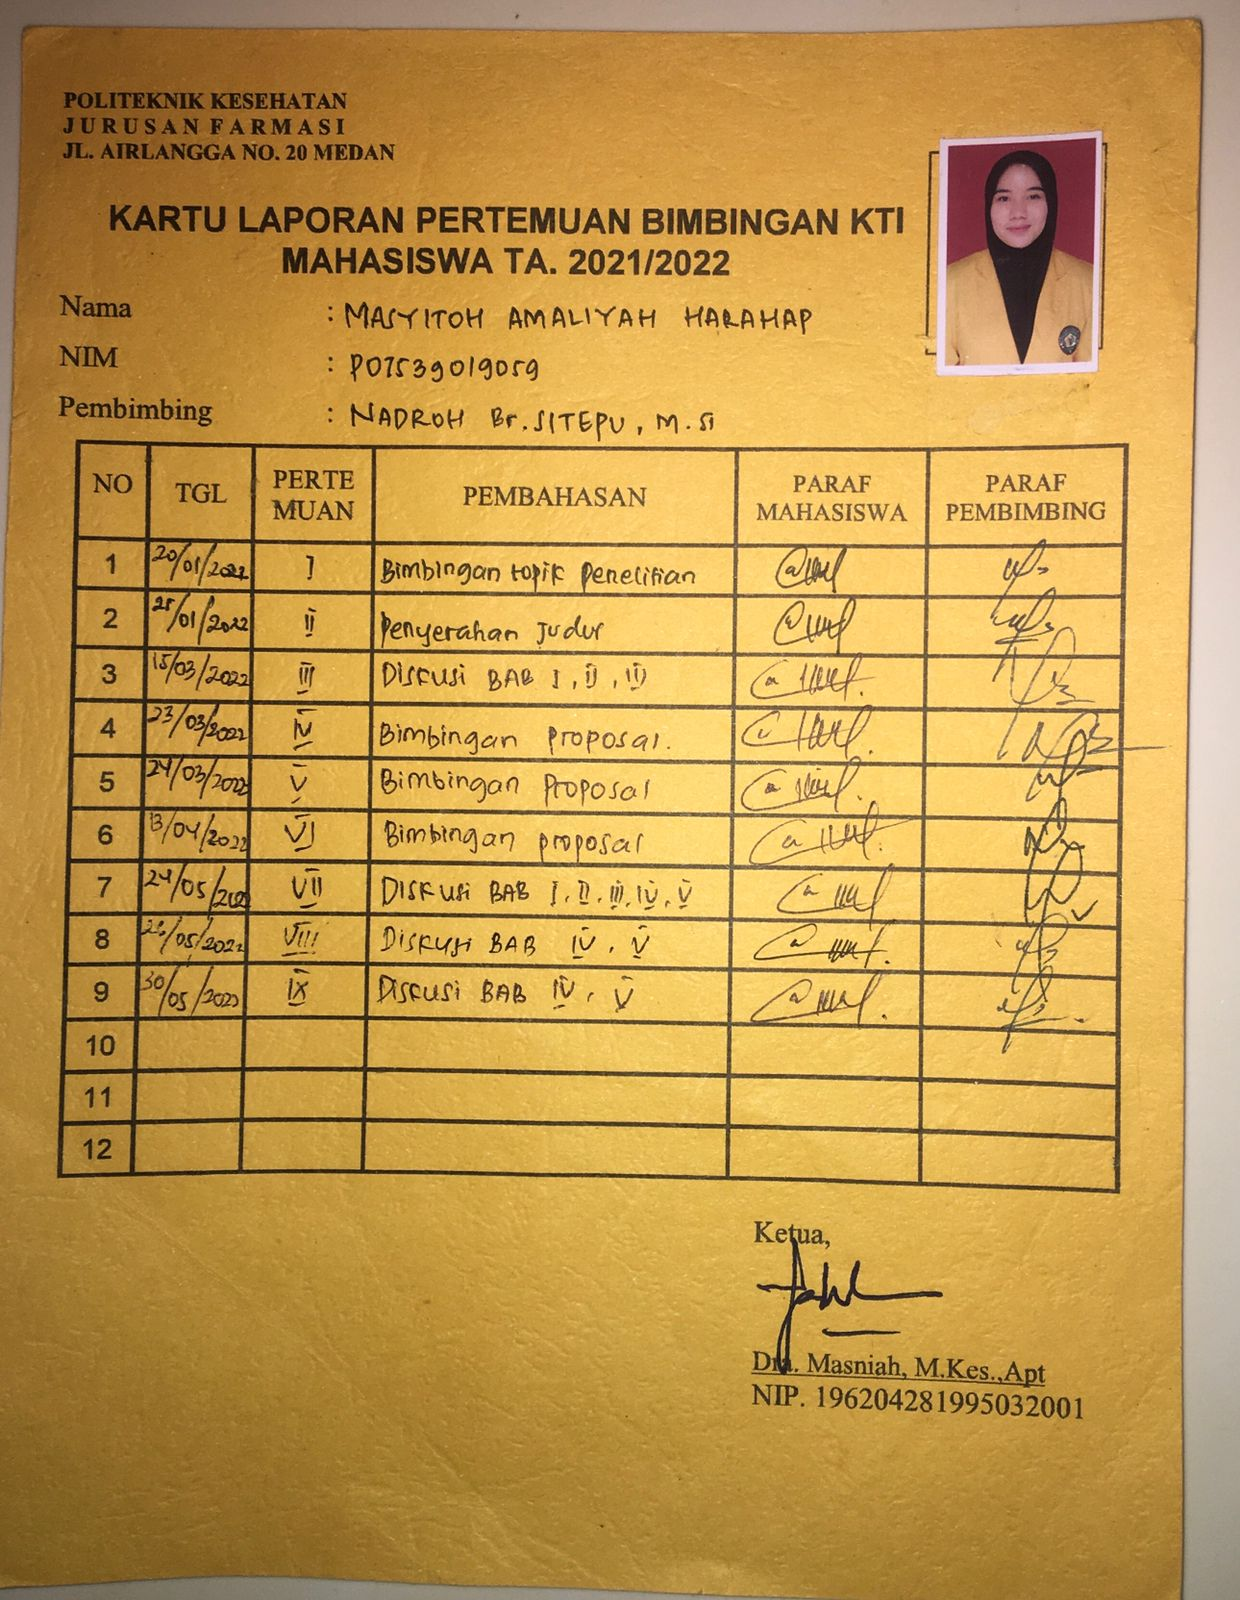 POLITEKNIK KESEHATAN
JURUSAN FARMASI
JL. AIRLANGGA NO. 20 MEDAN
KARTU LAPORAN PERTEMUAN BIMBINGAN KTI
MAHASISWA TA. 2021/2022
Nama : MASYITOH AMALIYAH HARAHAP
NIM : P07539019059
Pembimbing : NADROH Br. SITEPU, M.Si
NO TGL PERTE MUAN PEMBAHASAN PARAF MAHASISWA PARAF PEMBIMBING
1 20/01/2022 I Bimbingan topik penelitian
2 25/01/2022 II Penyerahan Judul
3 15/03/2022 III Diskusi BAB I, II, III
4 23/03/2022 IV Bimbingan proposal.
5 24/03/2022 V Bimbingan Proposal
6 13/04/2022 VI Bimbingan proposal
7 24/05/2022 VII Diskusi BAB I, II, III, IV, V
8 VIII Diskusi BAB IV, V
9 30/05/2022 IX Diskusi BAB IV, V
10
11
12
Ketua,
Dra. Masniah, M.Kes.,Apt
NIP. 196204281995032001